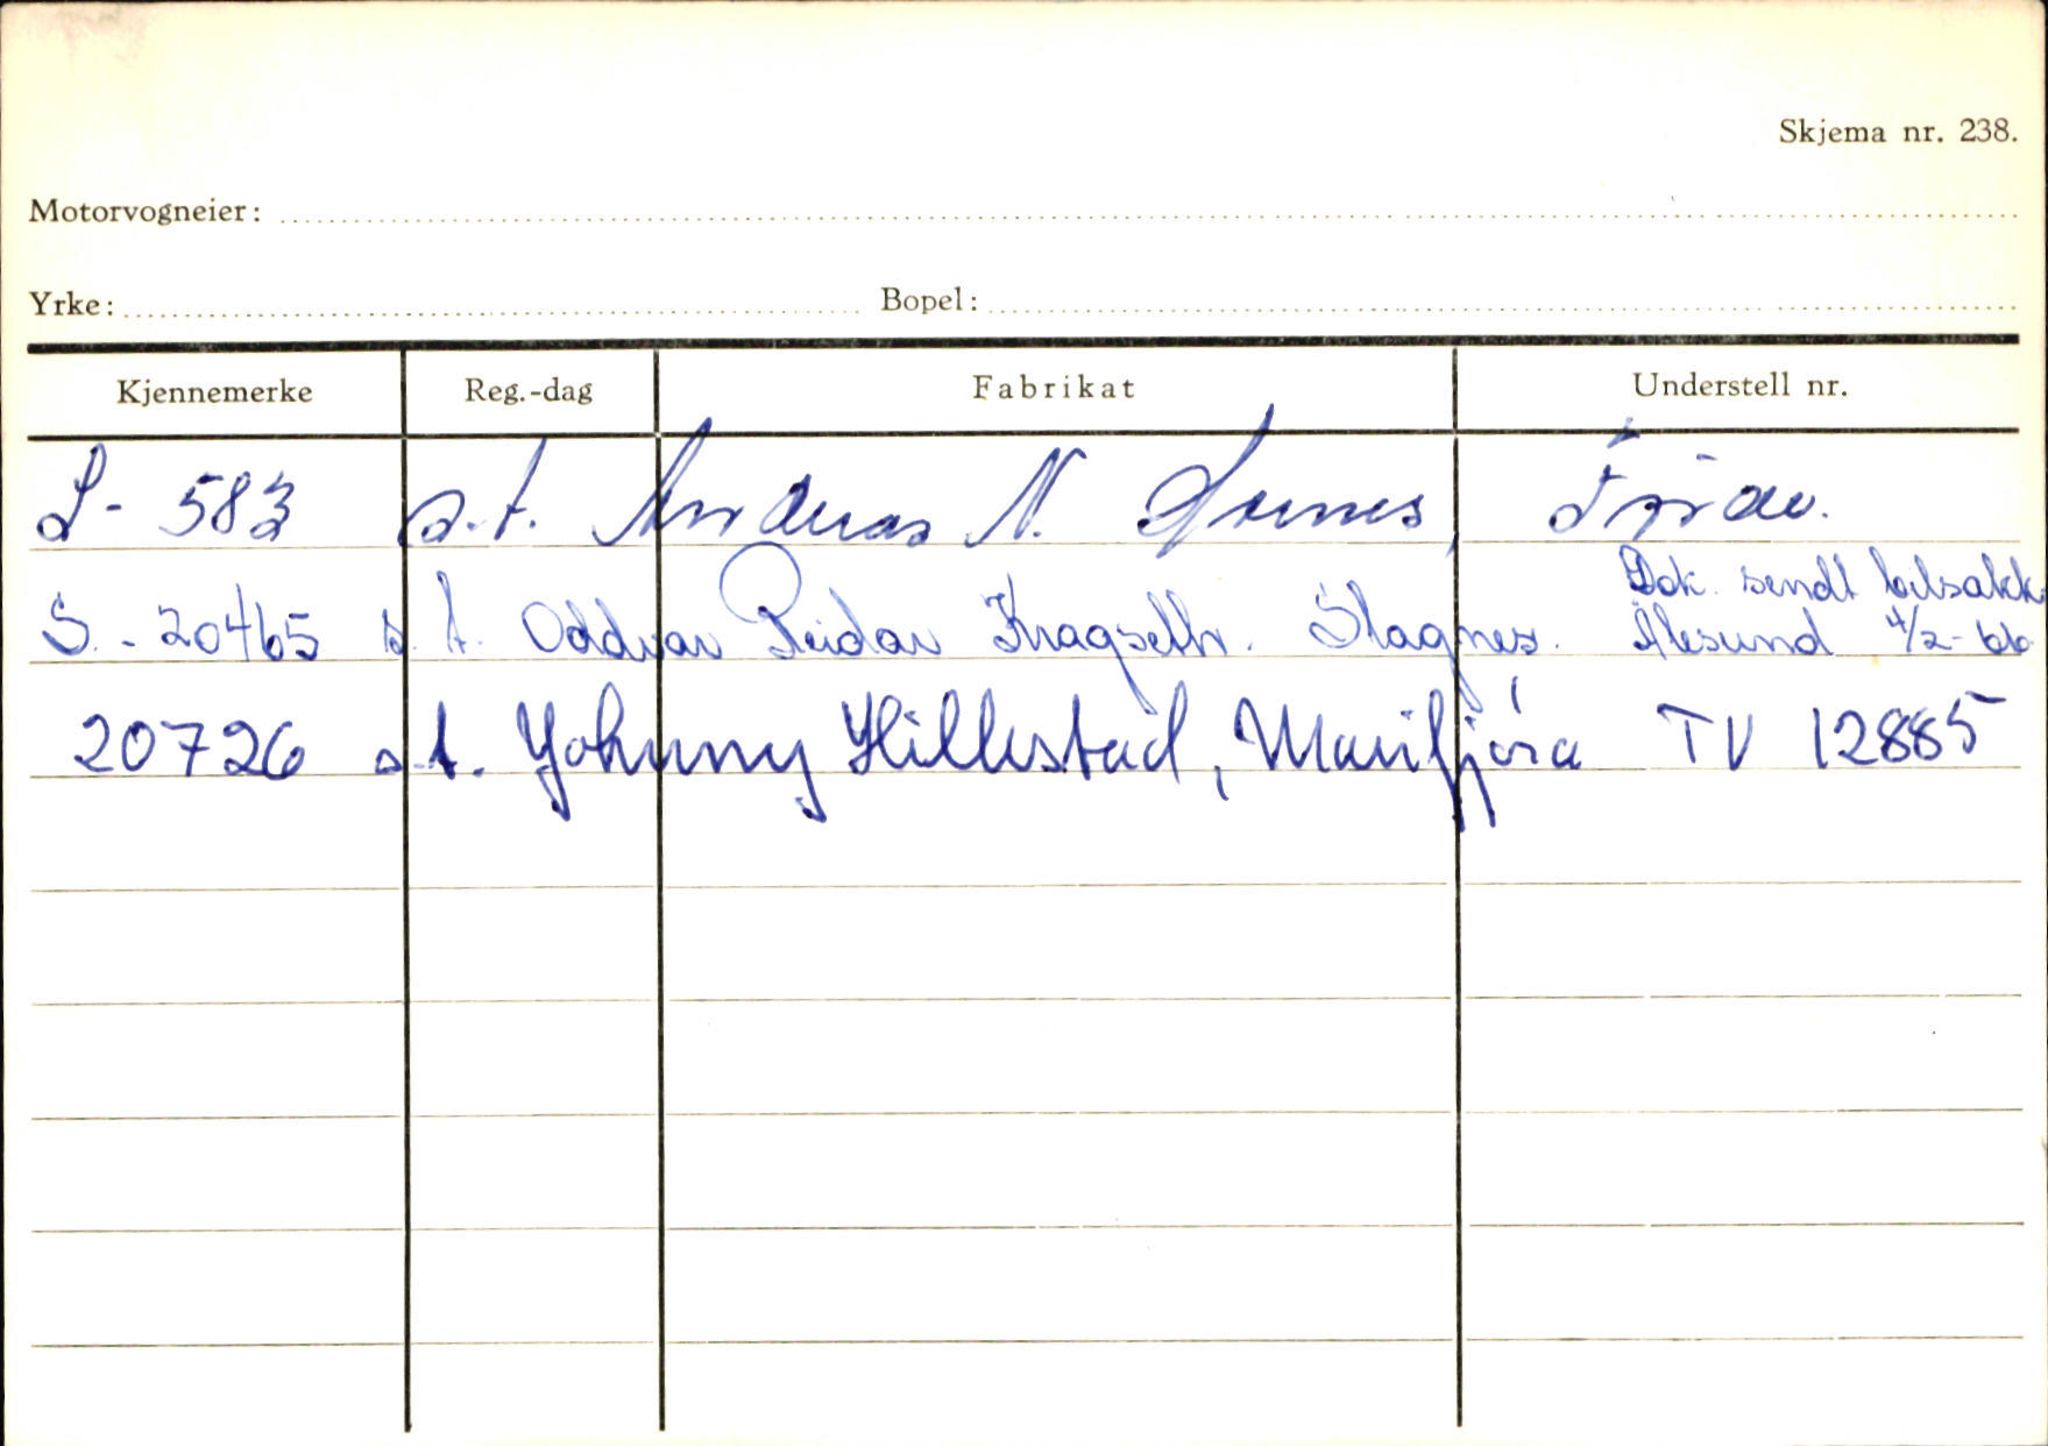 Skjema nr. 238.
Motorvogneier:
Yrke: Bopel:
Kjennemerke Reg.-dag Fabrikat Understell nr.
S- 583 s.t. Andreas N. 
Dok. sendt bilsakk.
S.-20465 s.t. Oddvar Reidar Kragseth. Ålesund 4/2-66
20726 s.t. Johnny Hillestad, Marifjøra TV 12885